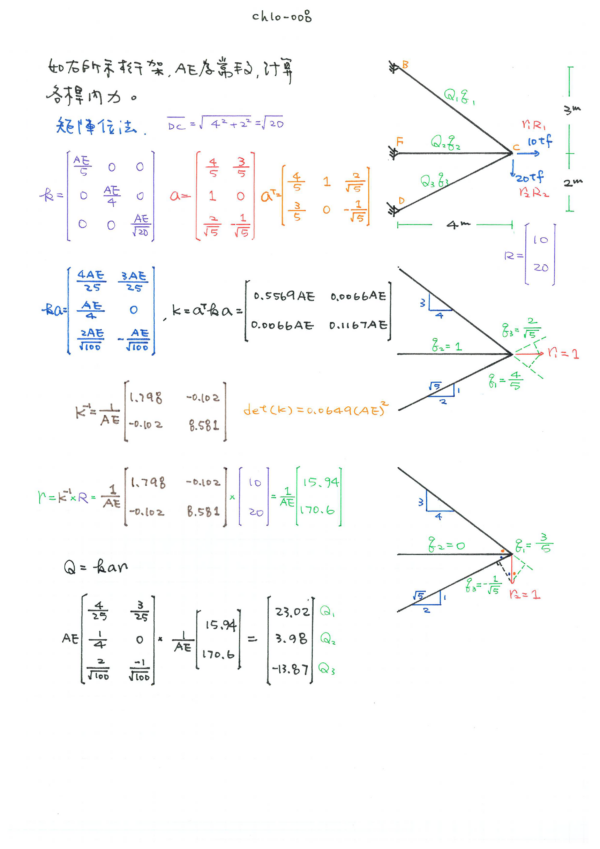 ch10-008
如右所示桁架，AE為常數，計算
各桿內力。
矩陣位法. DC = √(4²+2²) = √20
k = [AE/5 0 0; 0 AE/4 0; 0 0 AE/√20] a = [4/5 3/5; 1 0; 2/√5 -1/√5] aᵀ = [4/5 1 2/√5; 3/5 0 -1/√5]
B
Q₁q₁
F
Q₂q₂
C
r₁R₁
10tf
D
Q₃q₃
20tf
r₂R₂
3m
2m
4m
R = [10; 20]
ka = [4AE/25 3AE/25; AE/4 0; 2AE/√100 -AE/√100], K = aᵀka = [0.5569AE 0.0066AE; 0.0066AE 0.1167AE]
3
4
q₃=2/√5
q₂=1
r₁=1
q₁=4/5
√5
1
2
K⁻¹ = 1/AE [1.798 -0.102; -0.102 8.581] det(K)=0.0649(AE)²
r = K⁻¹×R = 1/AE [1.798 -0.102; -0.102 8.581] × [10; 20] = 1/AE [15.94; 170.6]
3
4
q₂=0
q₁=3/5
q₃=-1/√5
r₂=1
√5
1
2
Q = kar
AE [4/25 3/25; 1/4 0; 2/√100 -1/√100] × 1/AE [15.94; 170.6] = [23.02; 3.98; -13.87] Q₁ Q₂ Q₃